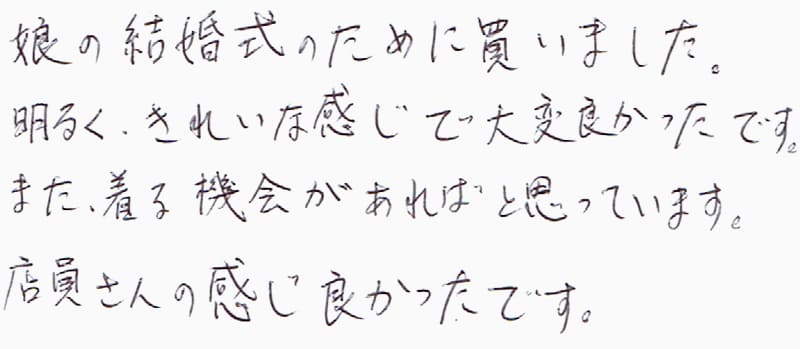 娘の結婚式のために買いました。
明るく、きれいな感じで大変良かったです。
また、着る機会があればと思っています。
店員さんの感じ良かったです。